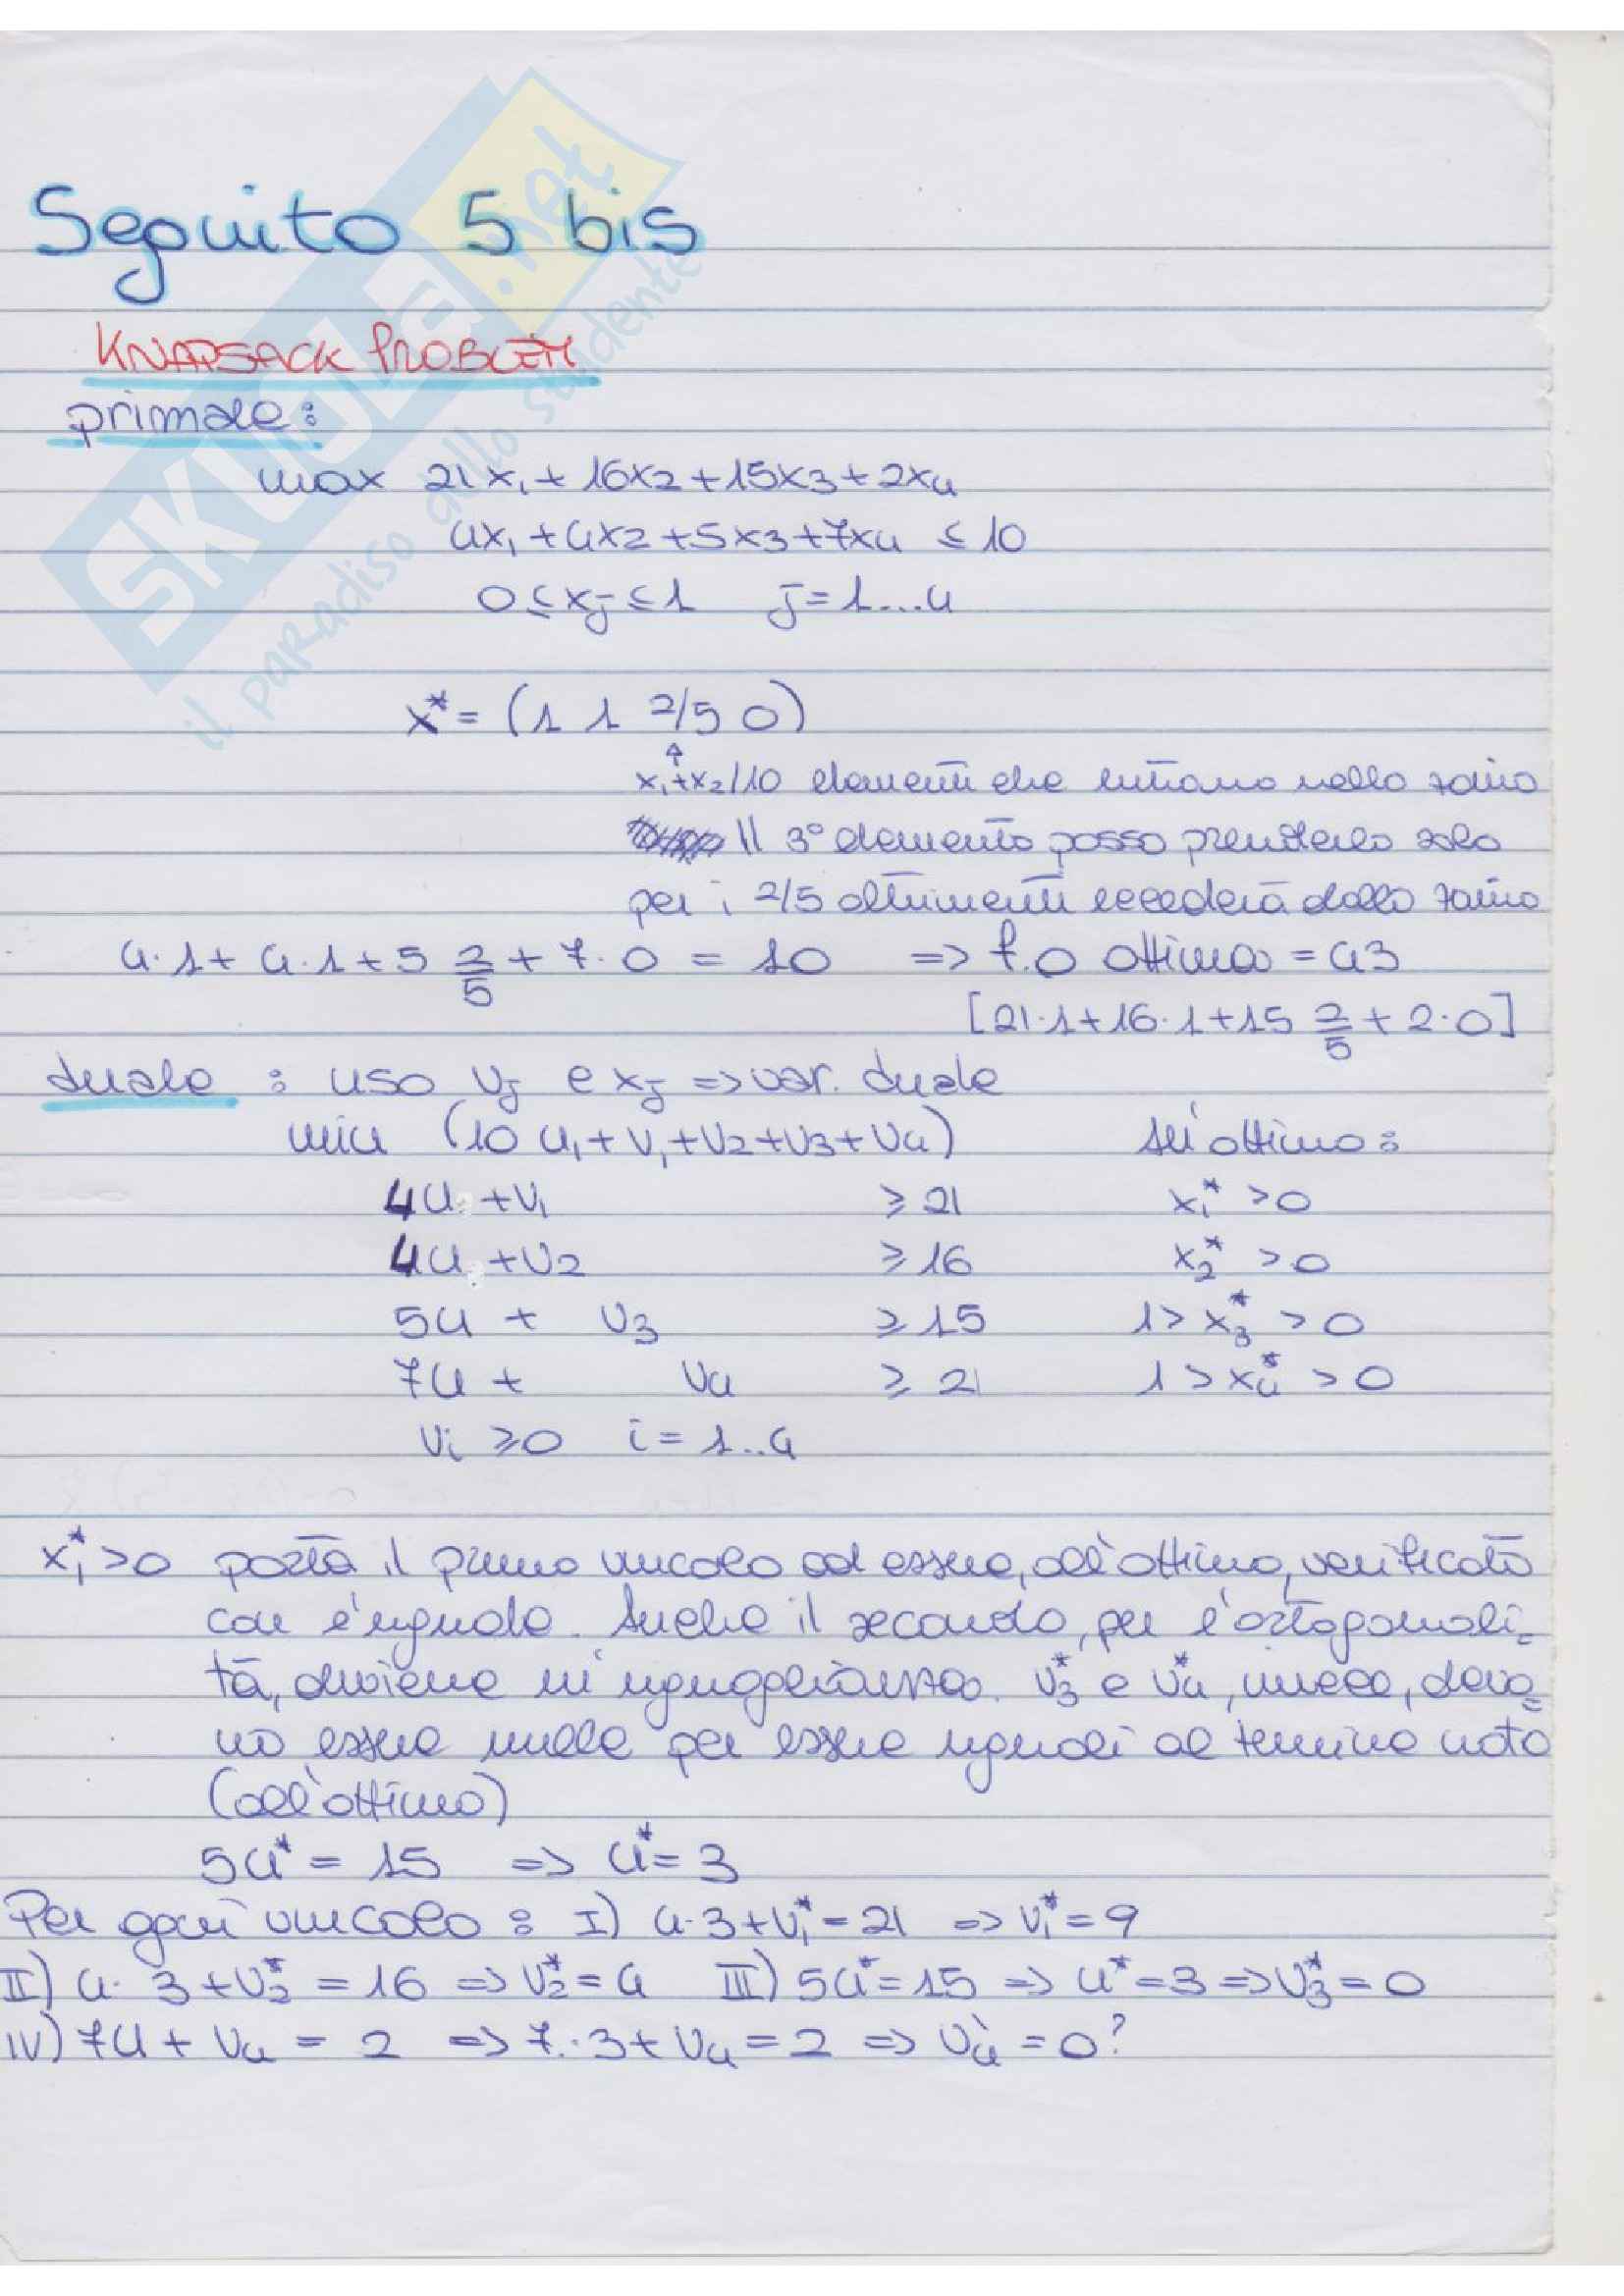 Seguito 5 bis
KNAPSACK PROBLEM
primale:
max 21x₁ + 16x₂ + 15x₃ + 2x₄
4x₁ + 4x₂ + 5x₃ + 7x₄ ≤ 10
0 ≤ xj ≤ 1 j = 1...4
x* = (1 1 2/5 0)
x₁+x₂/10 elementi che entrano nello zaino
Il 3° elemento posso prenderlo solo
per i 2/5 altrimenti eccederà dallo zaino
4·1 + 4·1 + 5 2/5 + 7·0 = 10 => f.o ottima = 43
[21·1 + 16·1 + 15 2/5 + 2·0]
duale : uso vj e xj => var. duale
min (10 u₁ + v₁ + v₂ + v₃ + v₄) All'ottimo:
4u + v₁ ≥ 21 x₁* > 0
4u + v₂ ≥ 16 x₂* > 0
5u + v₃ ≥ 15 1 > x₃* > 0
7u + v₄ ≥ 21 1 > x₄* > 0
vi ≥ 0 i = 1..4
x₁* > 0 porta il primo vincolo ad essere, all'ottimo, verificato
con l'uguale. Anche il secondo, per l'ortogonali=
tà, diviene un'uguaglianza. v₃* e v₄*, invece, devo=
no essere nulle per essere uguali al termine noto
(all'ottimo)
5u* = 15 => u* = 3
Per ogni vincolo : I) 4·3 + v₁* = 21 => v₁* = 9
II) 4·3 + v₂* = 16 => v₂* = 4 III) 5u* = 15 => u* = 3 => v₃* = 0
IV) 7u + v₄ = 2 => 7·3 + v₄ = 2 => v₄ = 0?
SKUOLA.net
il paradiso dello studente